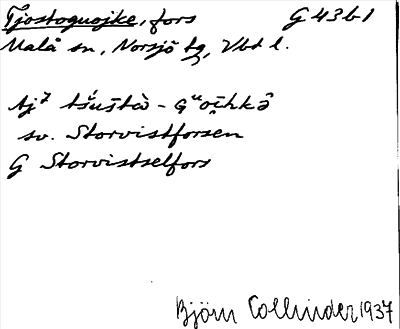 Tjostoguojke, fors G 43 b 1
Malå sn, Norsjö tg, Vbt l.
tj⁷ tšúštà - Gᵘoi̯hkə̑
sv. Storvistforsen
G Storvistselfors
Björn Collinder 1937